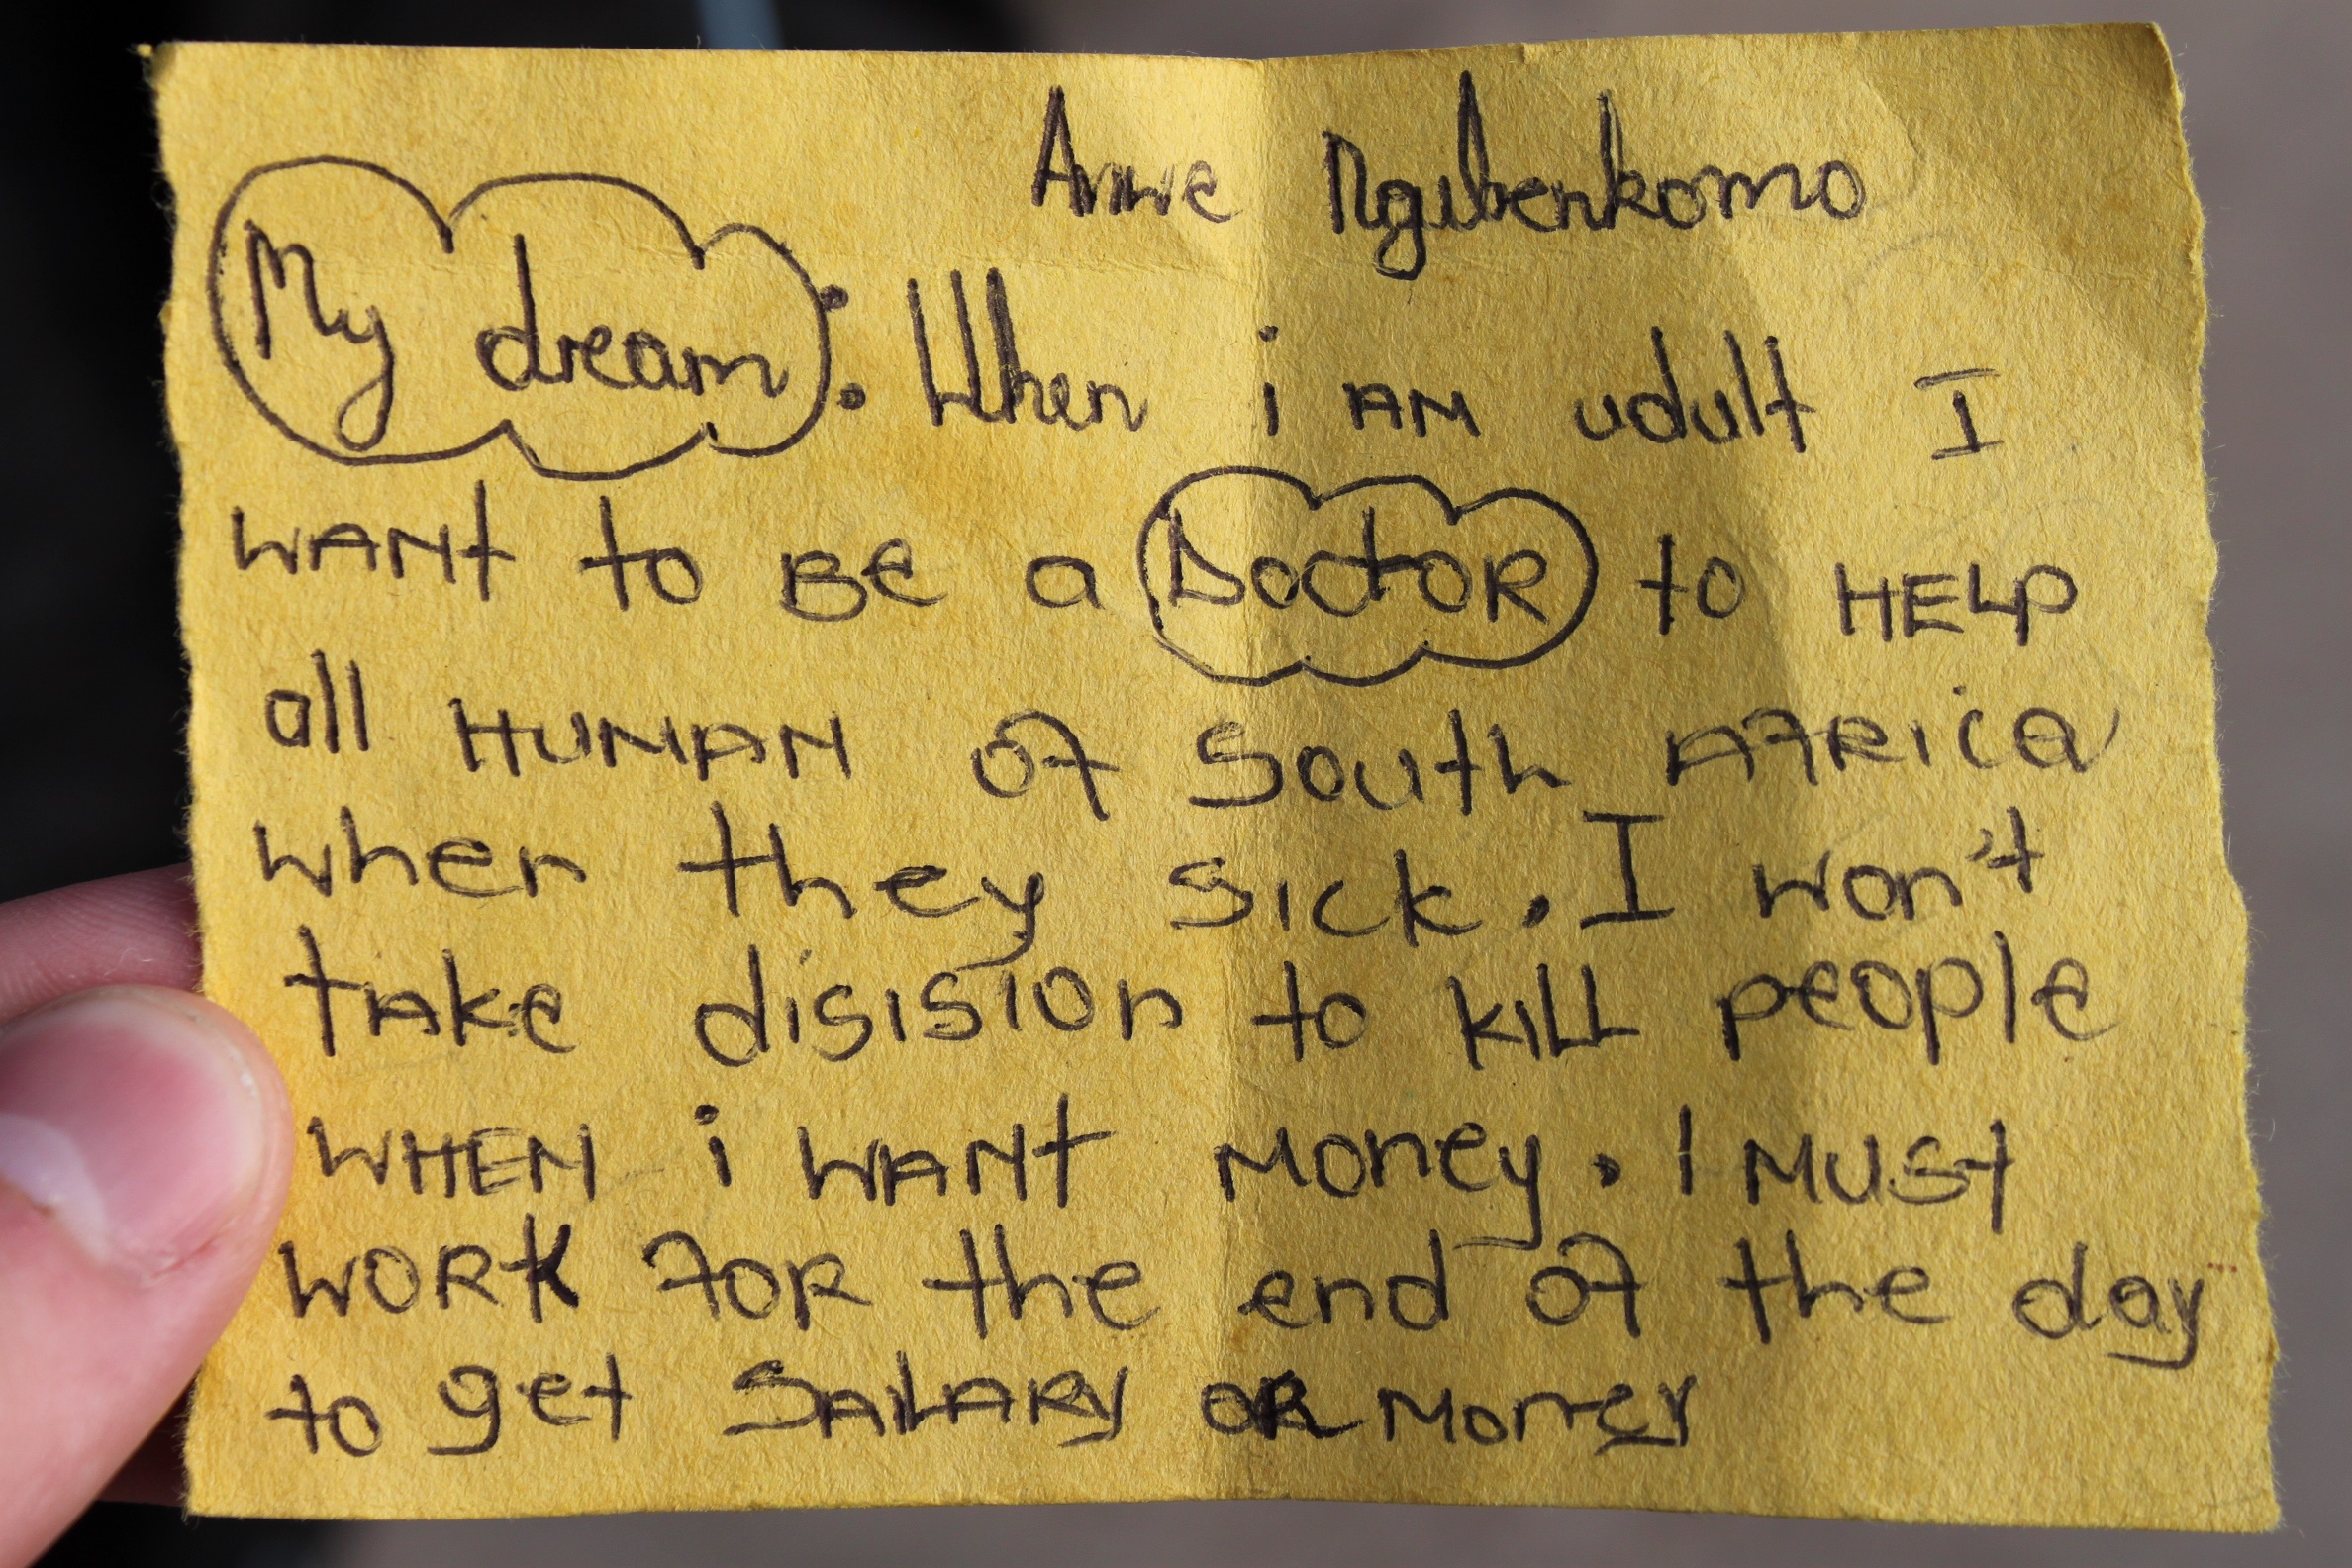 Anwe Ngubenkomo
My dream: When i AM udult I
WANt to BE a DoctoR to HELP
all HUMAN of South AfRica
when they sick. I won't
take disision to kiLL people
WHEN i WANt Money. I MUSt
WORk foR the end of the day
to get SALARY OR Money